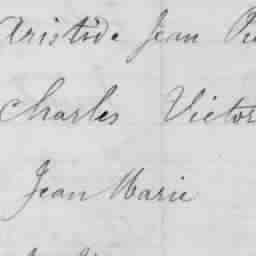 Aristide Jean
Charles Victor
Jean Marie